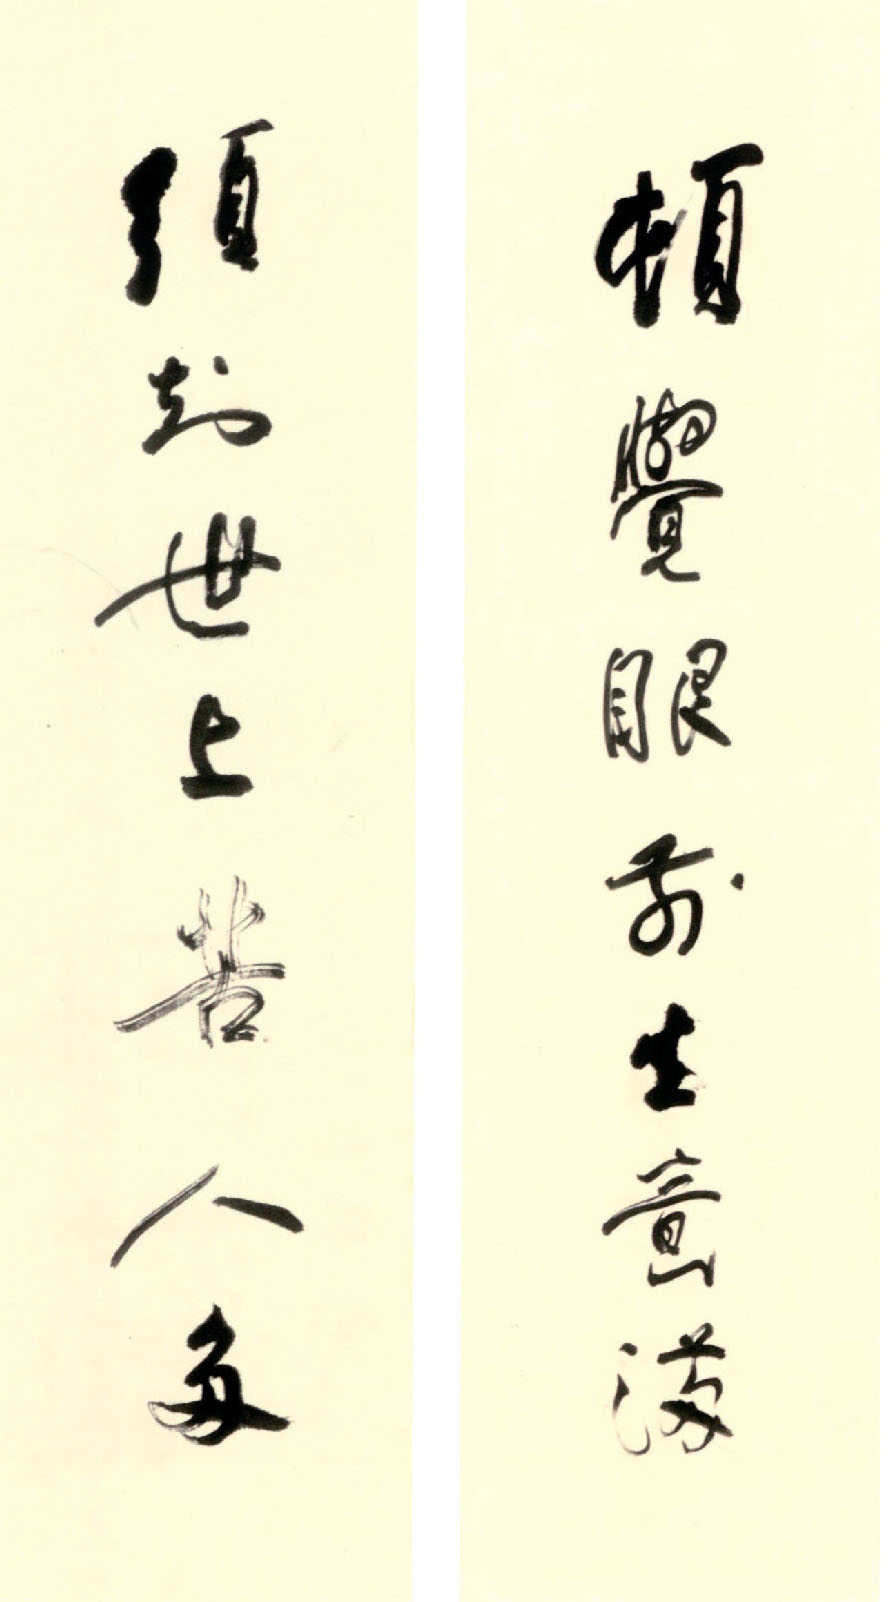 頓覺眼前生意滿
須知世上苦人多